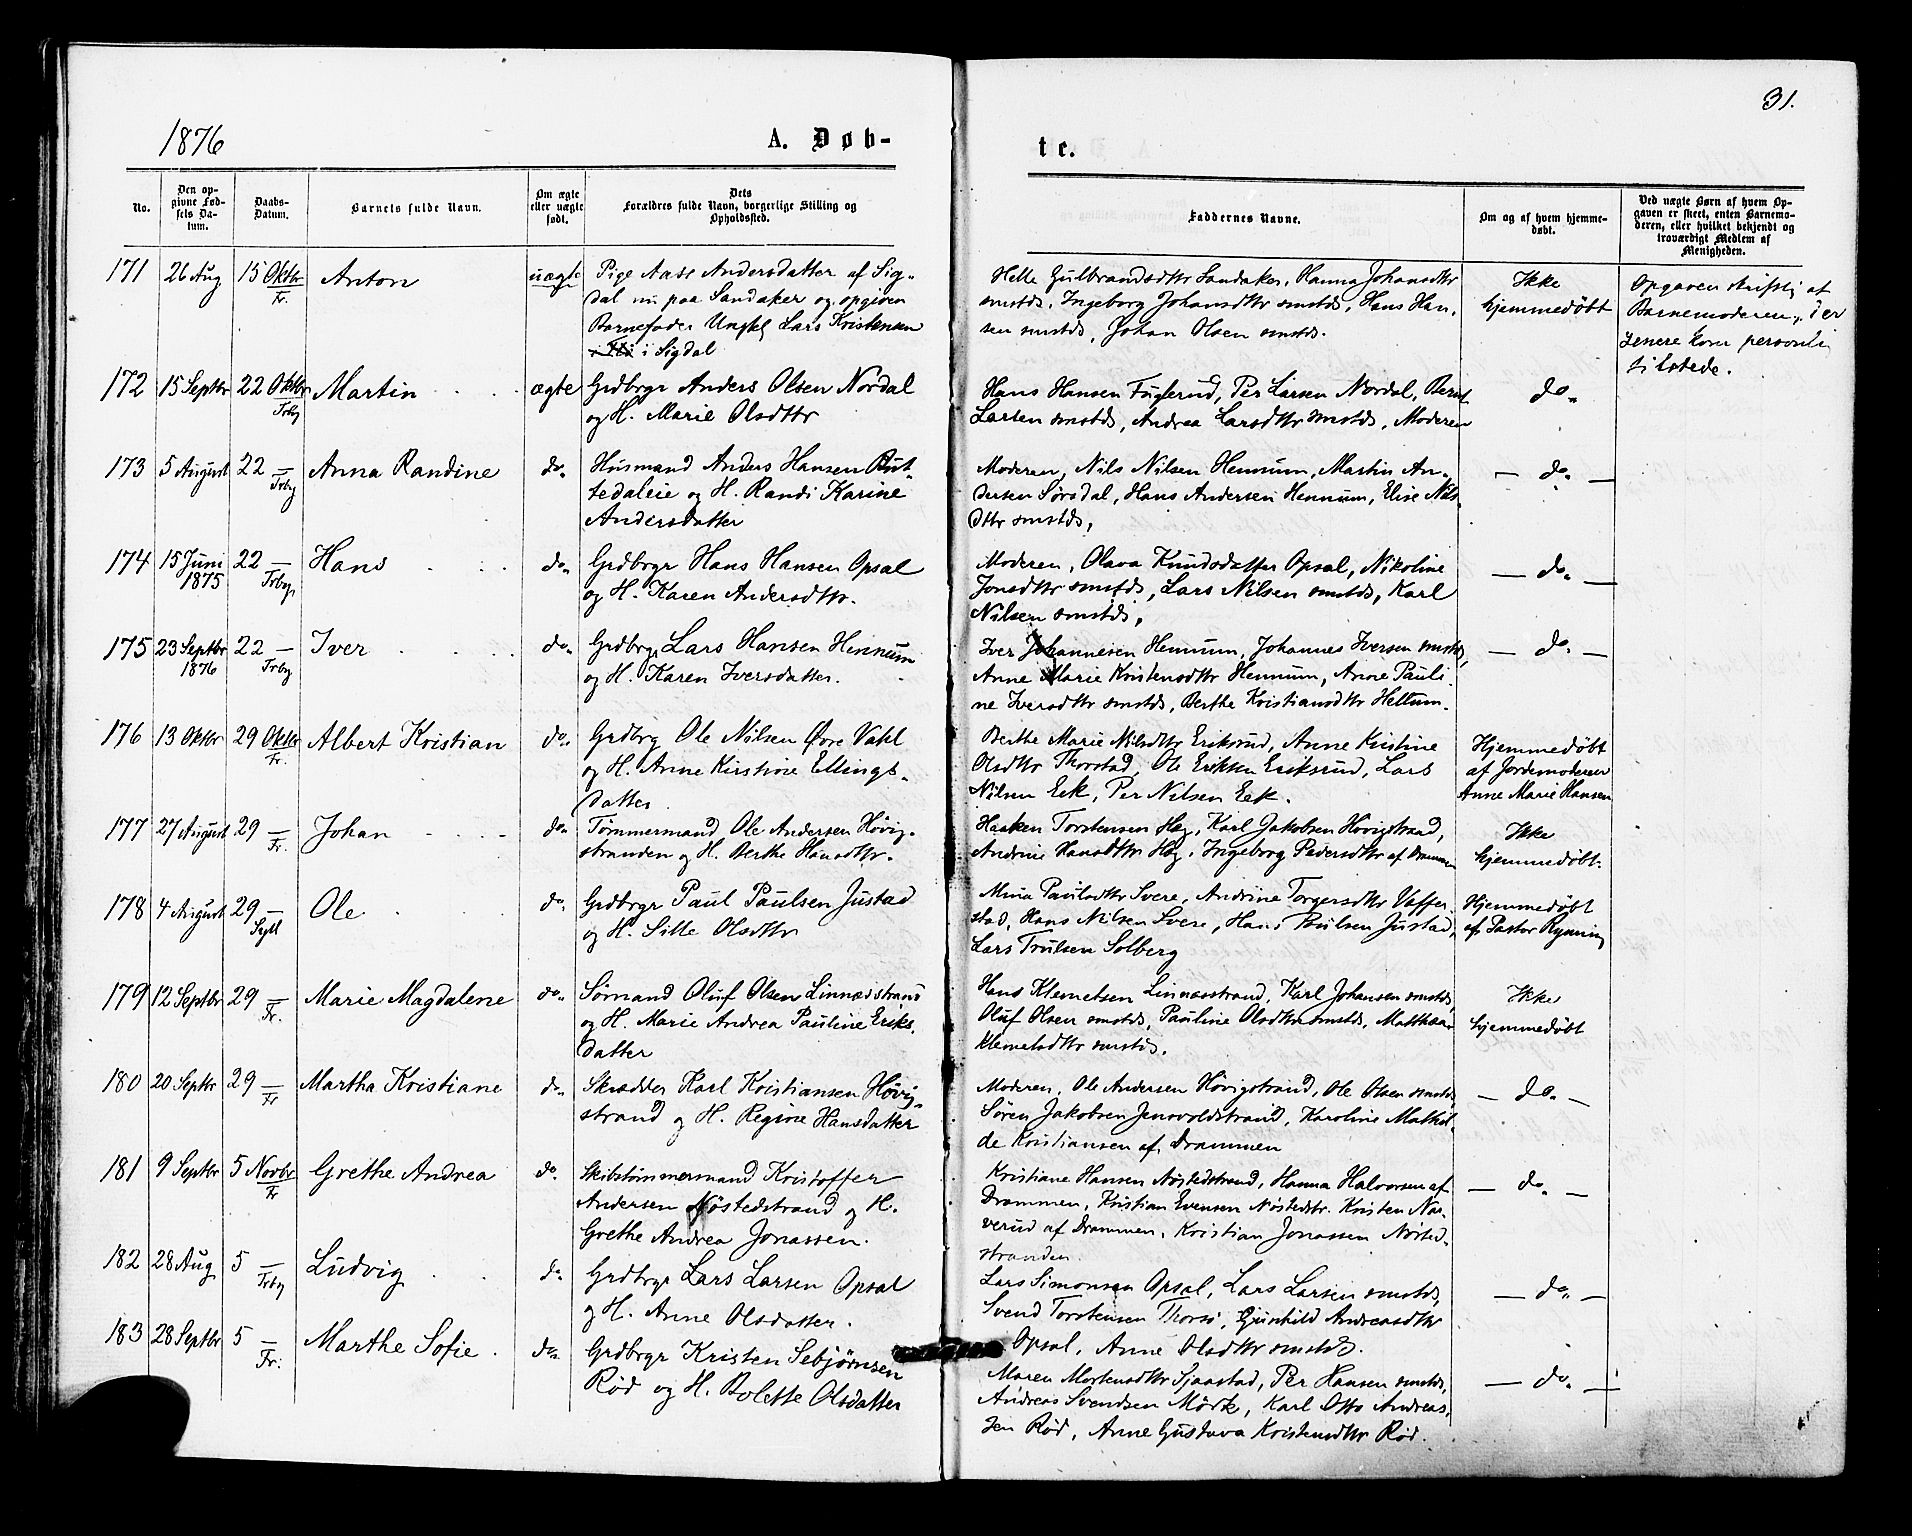 31.
1876
A. Døb-
te.
No.
Den op-
givne Fød-
sels Da-
tum.
Daabs-
Datum.
Barnets fulde Navn.
Om ægte
eller uægte
født.
Dets
Forældres fulde Navn, borgerlige Stilling og
Opholdssted.
Faddernes Navne.
Om og af hvem hjemme-
døbt.
Ved uægte Børn af hvem Op-
gaven er skeet, enten Barnemo-
deren, eller hvilket bekjendt og
troværdigt Medlem af
Menigheden.
171 26 Aug 15 Oktbr Fr. Anton uægte
Pige Aase Andersdatter af Sig-
dal nu paa Sandaker og opgiven
Barnefader Ungkl Lars Kristensen
i Sigdal
Helle Gulbrandsdttr Sandaker, Hanna Johansdttr
smstds, Ingeborg Johansdttr smstds, Hans Han-
sen smstds, Johan Olsen smstds.
Ikke
hjemmedøbt
Opgaven skriftlig af
Barnemoderen, der
senere kom personlig
tilstede.
172 15 Septbr 22 Oktbr Trby Martin ægte
Grdbrgr Anders Olsen Nordal
og H. Marie Olsdttr
Hans Hansen Fuglerud, Per Larsen Nordal, Bernt
Larsen smstds, Andrea Larsdttr smstds, Moderen
do.
173 5 August 22 — Trby Anna Randine do.
Husmand Anders Hansen But-
tedaleie og H. Randi Karine
Andersdatter
Moderen, Nils Nilsen Hennum, Martin An-
dersen Sørsdal, Hans Andersen Hennum, Elise Nils-
dttr smstds,
— do. —
174 15 Juni 1875 22 — Trbyr Hans do.
Grdbrgr Hans Hansen Opsal
og H. Karen Andersdttr.
Moderen, Olava Knudsdatter Opsal, Nikoline
Jonsdttr smstds, Lars Nilsen smstds, Karl
Nilsen smstds,
— do. —
175 23 Septbr 1876 22 — Trby Iver do.
Grdbrgr Lars Hansen Hennum
og H. Karen Iversdatter.
Iver Johannesen Hennum, Johannes Iversen smstds,
Anne Marie Kristensdttr Hennum, Anne Pauli-
ne Iversdttr smstds, Berthe Kristiansdttr Hellum.
— do. —
176 13 Oktbr 29 Oktbr Fr. Albert Kristian do.
Grdbrg Ole Nilsen Øvre Vahl
og H. Anne Kirstine Ellings-
datter
Berthe Marie Nilsdttr Eriksrud, Anne Kristine
Olsdttr Thorstad, Ole Eriksen Eriksrud, Lars
Nilsen Eek, Per Nilsen Eek.
Hjemmedøbt
af Jordemoderen
Anne Marie Hansen
177 27 August 29 — Fr. Johan do.
Tømmermand Ole Andersen Høvig-
stranden og H. Berthe Hansdttr.
Haaken Torstensen Høg, Karl Jakobsen Høvigstrand,
Andrine Hansdttr Høg, Ingeborg Pedersdttr af Drammen
Ikke
hjemmedøbt.
178 4 August 29 — Syll Ole do.
Grdbrgr Paul Paulsen Justad
og H. Sille Olsdttr
Mina Paulsdttr Svere, Andrine Torgersdttr Vaffer-
stad, Hans Nilsen Svere, Hans Paulsen Justad,
Lars Trulsen Solberg
Hjemmedøbt
af Pastor Rynning
179 12 Septbr 29 — Fr. Marie Magdalene do.
Sømand Oluf Olsen Linnæsstrand
og H. Marie Andrea Pauline Eriks-
datter
Hans Klemetsen Linnæsstrand, Karl Johansen smstds,
Oluf Olsen smstds, Pauline Olsdttr smstds, Matthæa
Klemetsdttr smstds.
Ikke
hjemmedøbt
180 20 Septbr 29 — Fr Martha Kristiane do.
Skrædder Karl Kristiansen Høvig-
strand og H. Regine Hansdatter
Moderen, Ole Andersen Høvigstrand, Ole Olsen smstds,
Søren Jakobsen Jensvoldstrand, Karoline Mathil-
de Kristiansen af Drammen
— do. —
181 9 Septbr 5 Novbr Fr Grethe Andrea do.
Skibstømmermand Kristoffer
Andersen Nøstedstrand og H.
Grethe Andrea Jonassen.
Kristiane Hansen Nøstedstrand, Hanna Halvorsen af
Drammen, Kristian Evensen Nøstedstr. Kristen Nar-
verud af Drammen, Kristian Jonassen Nøsted-
stranden.
— do. —
182 28 Aug 5 — Trby Ludvig do.
Grdbrgr Lars Larsen Opsal
og H. Anne Olsdatter.
Lars Simonsen Opsal, Lars Larsen smstds,
Svend Torstensen Thorsø, Gunhild Andreasdttr
Opsal, Anne Olsdttr smstds.
— do. —
183 28 Septbr 5 — Fr. Marthe Sofie do.
Grdbrgr Kristen Sebjørnsen
Rød og H. Bolette Olsdatter
Maren Mortensdttr Sjaastad, Per Hansen smstds,
Andreas Svendsen Mørk, Karl Otto Andreas-
sen Rød, Anne Gustava Kristensdttr Rød.
— do. —